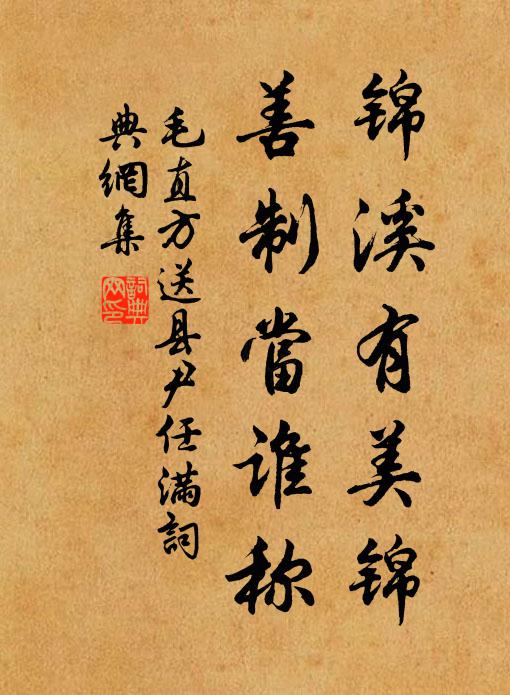 锦溪有美锦
善制當谁称
毛直方送县尹任满詞
典網集
詞典网印